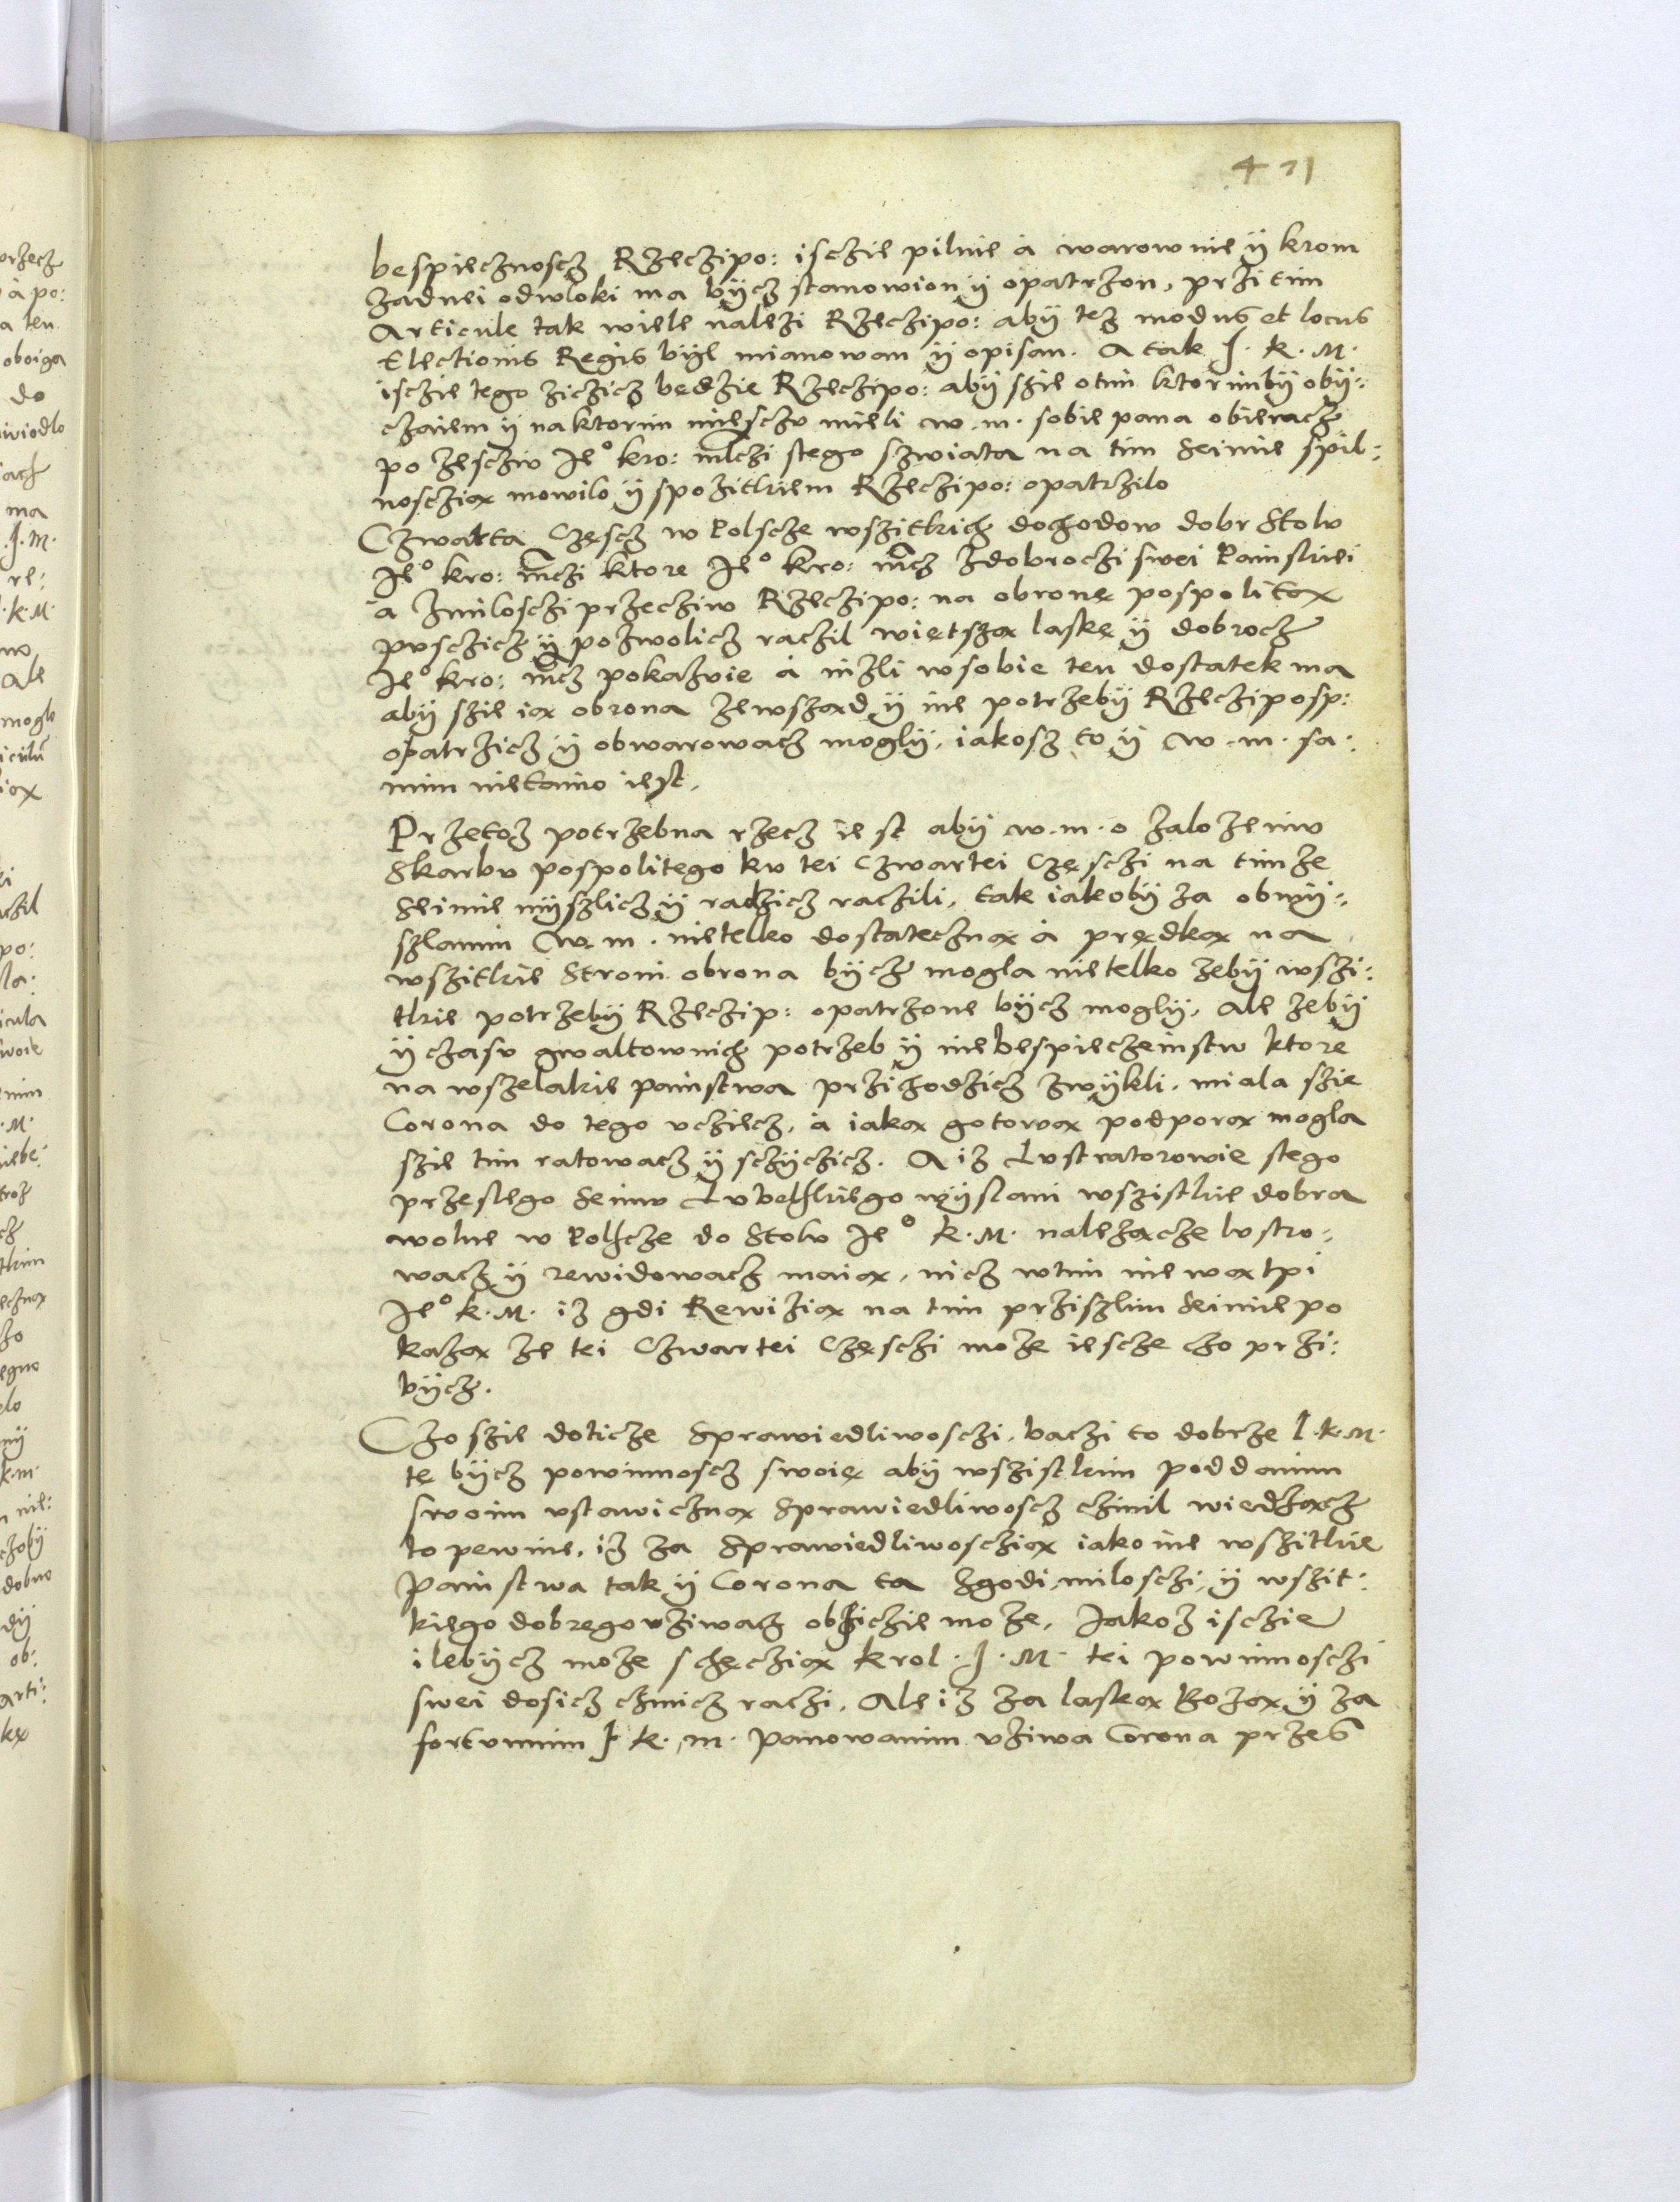 471
bespiecznoscz Rzeczipo: isczie pilnie a warownie ÿ krom
zadnei odwloki ma bÿcz stanowion ÿ opatrzon, przitim
Articule tak wiele nalezi Rzeczipo: abÿ tez modus et locus
Electionis Regis bÿl mianowan ÿ opisan. A tak J. K. M.
isczie tego ziczicz będzie Rzeczipo: abÿ szie otim ktorimbÿ obÿ:
czaiem ÿ naktorim miesczu mieli w. m. sobie pana obieracz
po zesczÿu Je° kro: mczi stego szwiata na tim Seimie spil:
nosczią mowilo ÿ spozitkiem Rzeczipo: opatrzilo
Czwarta Częscz w Polscze wszitkich dochodow dobr Stolu
Je° kro: mczi ktore Je° kro: mcz zdobroczi swei Painskiei
a zmilosczi przecziw Rzeczipo: na obronę pospolitą
pusczicz ÿ pozwolicz raczil więtszą laskę ÿ dobrocz
Je° kro: mcz pokazuie a nizli wsobie ten dostatek ma
abÿ szie ią obrona zewsząd ÿ ine potrzebÿ Rzecziposp:
opatrzicz ÿ obwarowacz moglÿ, iakosz to ÿ w. m. sa:
mim nietaino iest.
Przetoz potrzebna rzecz iest abÿ w. m. o zalozeniu
Skarbu pospolitego ku tei Czwartei Częsczi na timze
Seimie mÿszlicz ÿ radzicz raczili, tak iakobÿ za obmÿ:
szlanim w. m. nietelko dostateczną a prędką na
wszitkie Stroni obrona bÿcz mogla nietelko zebÿ wszi:
tkie potrzebÿ Rzeczip: opatrzone bÿcz moglÿ, ale zebÿ
ÿ czasu gwaltownich potrzeb ÿ niebespieczeinstw ktore
na wszelakie painstwa przichodzicz zwÿkli. miala szie
Corona do tego ucziecz, a iaką gotową podporą mogla
szie tim ratowacz ÿ sczÿczicz. A iz Lustratorowie stego
przeslego Seimu Lubelskiego wÿslani wszistkie dobra
wolne w Polscze do Stolu Je° K. M. należące lustro:
wacz ÿ rewidowacz maią, nicz wtim nie wątpi
Je° K. M. iz gdi Rewizią na tim priszlim Seimie po
każą ze tei Czwartei Częsczi może iescze czo przi:
bÿcz.
Czo szie doticze Sprawiedliwosczi, baczi to dobrze J. K. M.
tę bÿcz powinnoscz swoię abÿ wszistkim poddanim
swoim ustawiczną Sprawiedliwoscz czinil wiedząc
to pewnie, iz za Sprawiedliwosczią iako ine wszitkie
Painstwa tak ÿ Corona ta zgodi, milosczi, ÿ wszit:
kiego dobrego uziwacz obficzie moze, Jakoz isczie
ilebÿcz może schęczią Krol. J. M. tei powinnosczi
swei dosicz czinicz raczi, Ale iz za laską Bozą, ÿ za
fortunnim J. K. M. Panowanim uziwa Corona przes